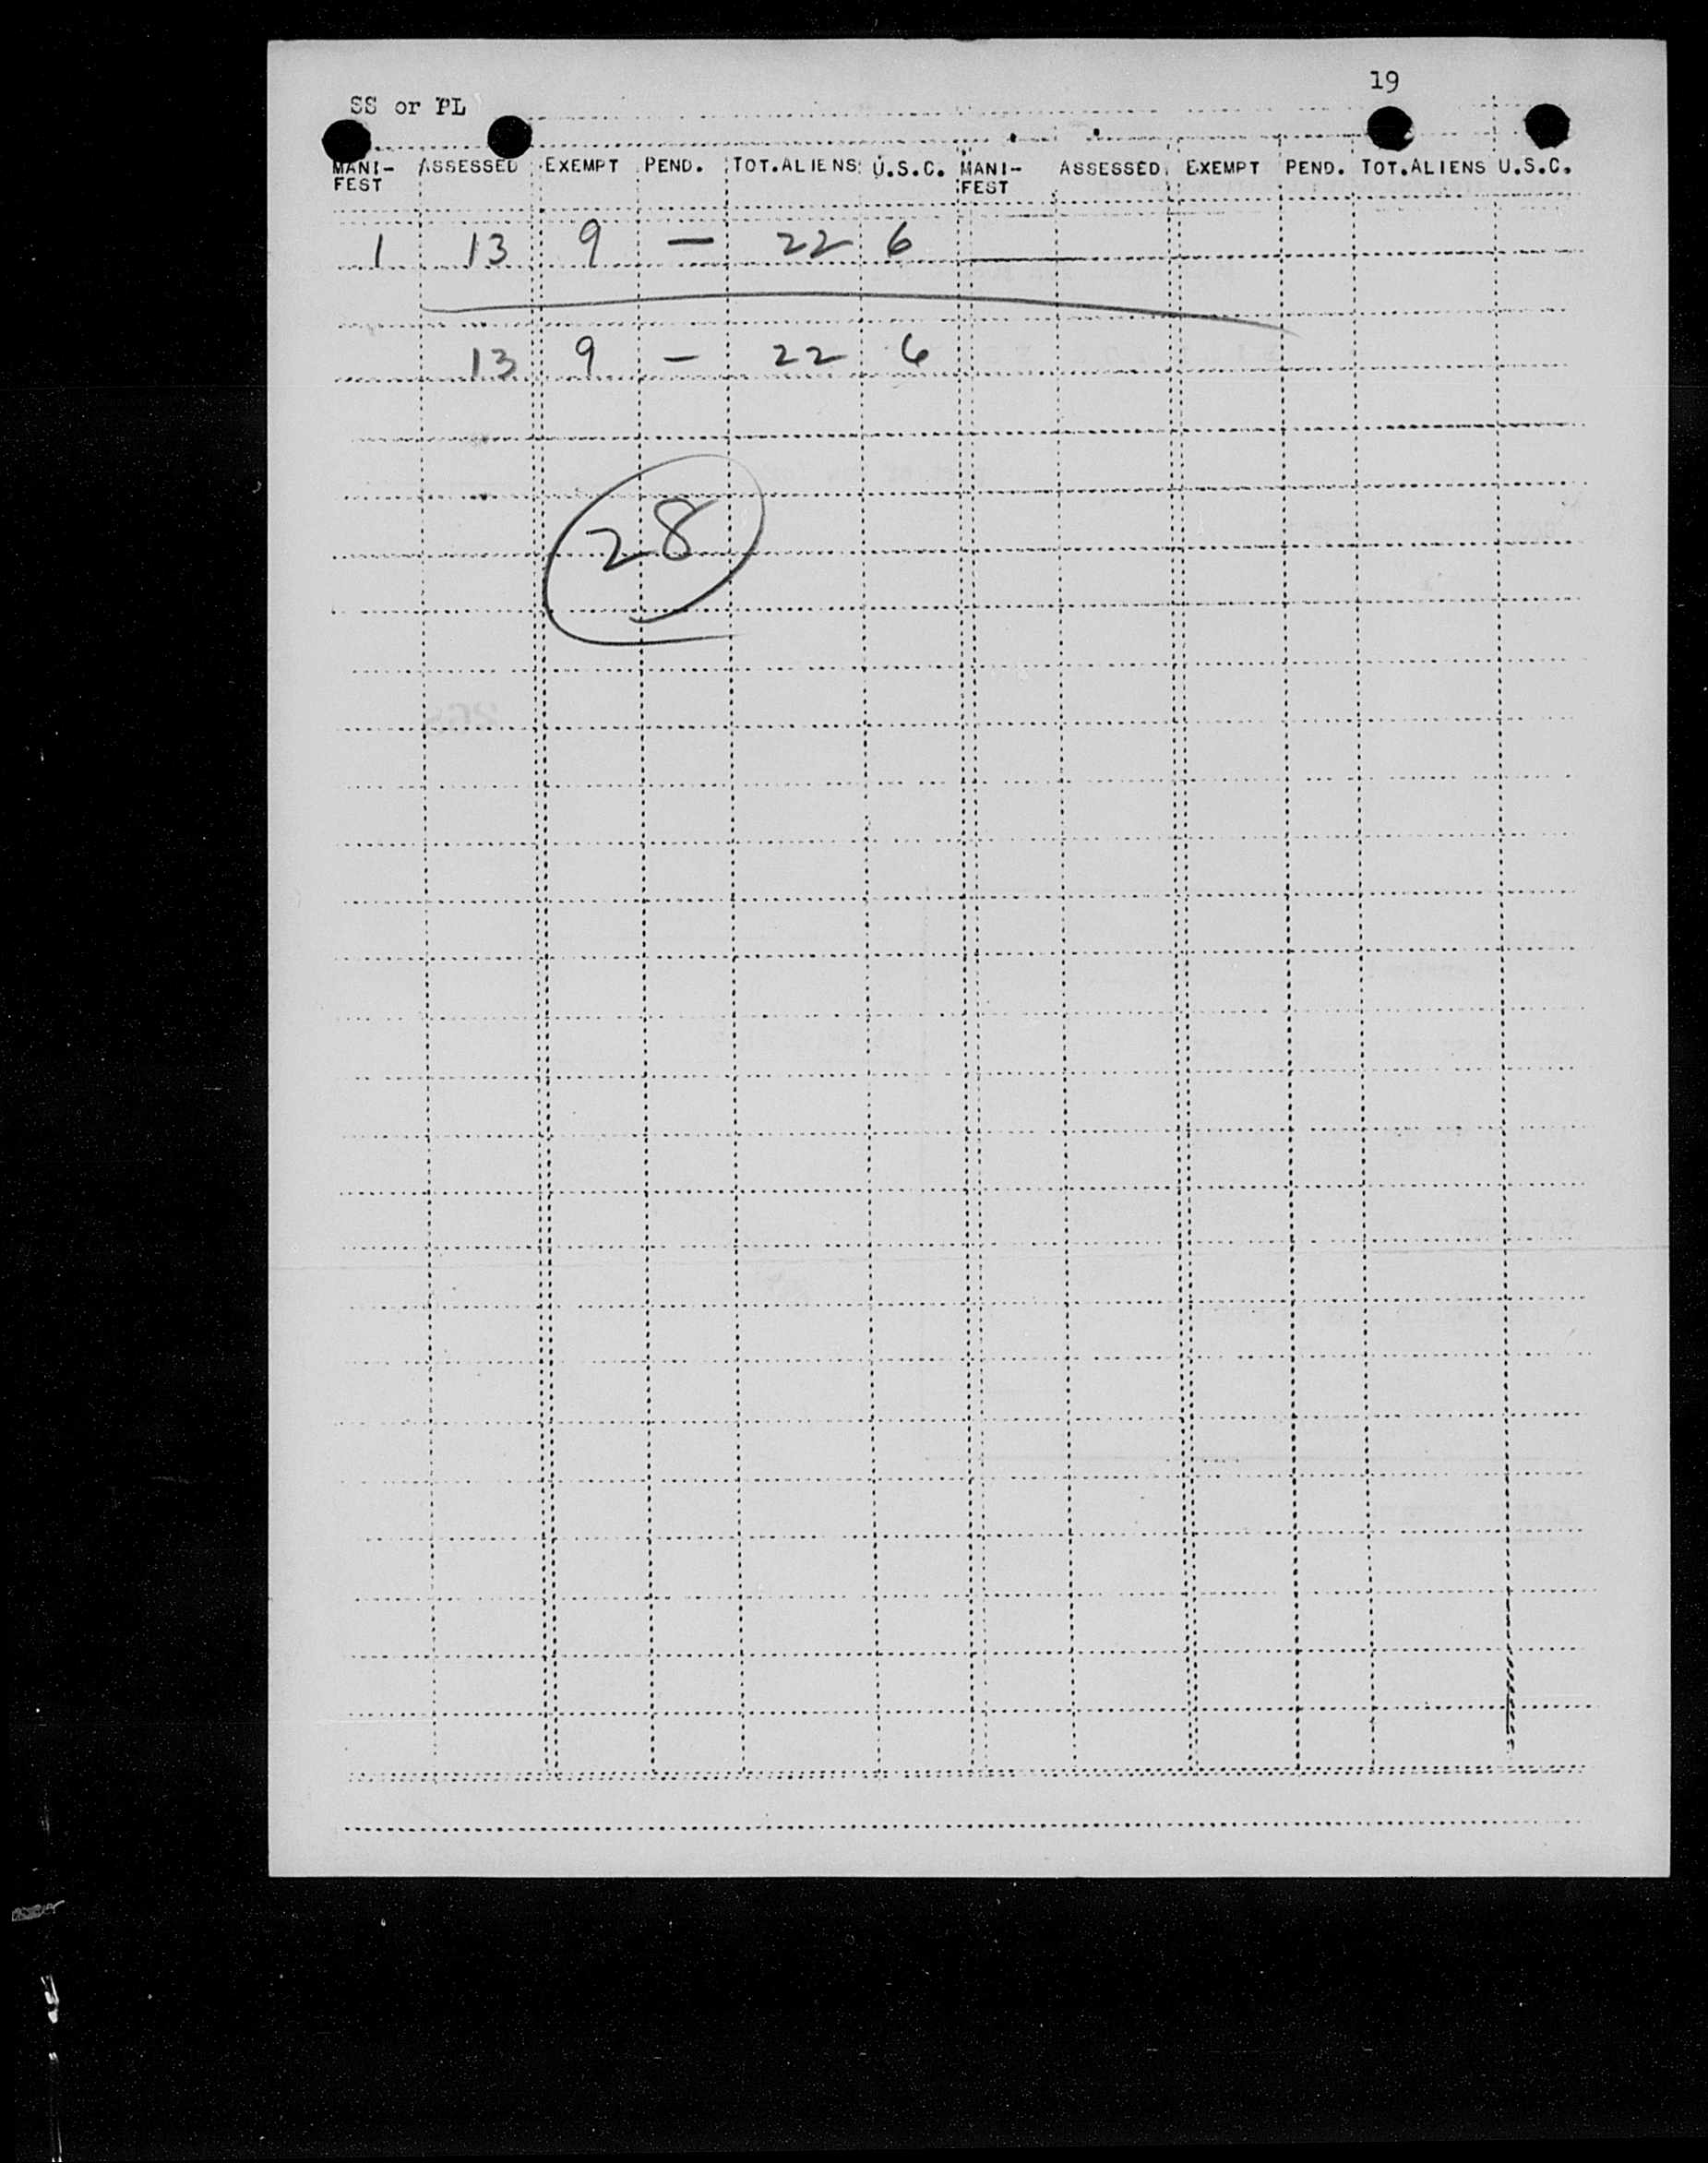 19
SS or PL
MANI- ASSESSED EXEMPT PEND. TOT.ALIENS U.S.C. MANI- ASSESSED EXEMPT PEND. TOT.ALIENS U.S.C.
FEST FEST
1 13 9 — 22 6
13 9 — 22 6
28